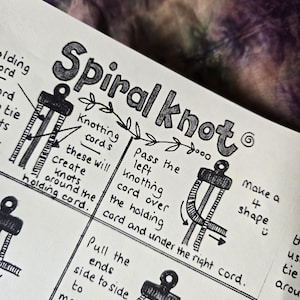 Spiral knot
holding
cord
tie
Knotting
cords
these will
create
knots
around the
holding cord.
Pass the
left
knotting
cord over
the holding
cord and under the right cord.
make a
4
shape
Pull the
ends
side to side
to